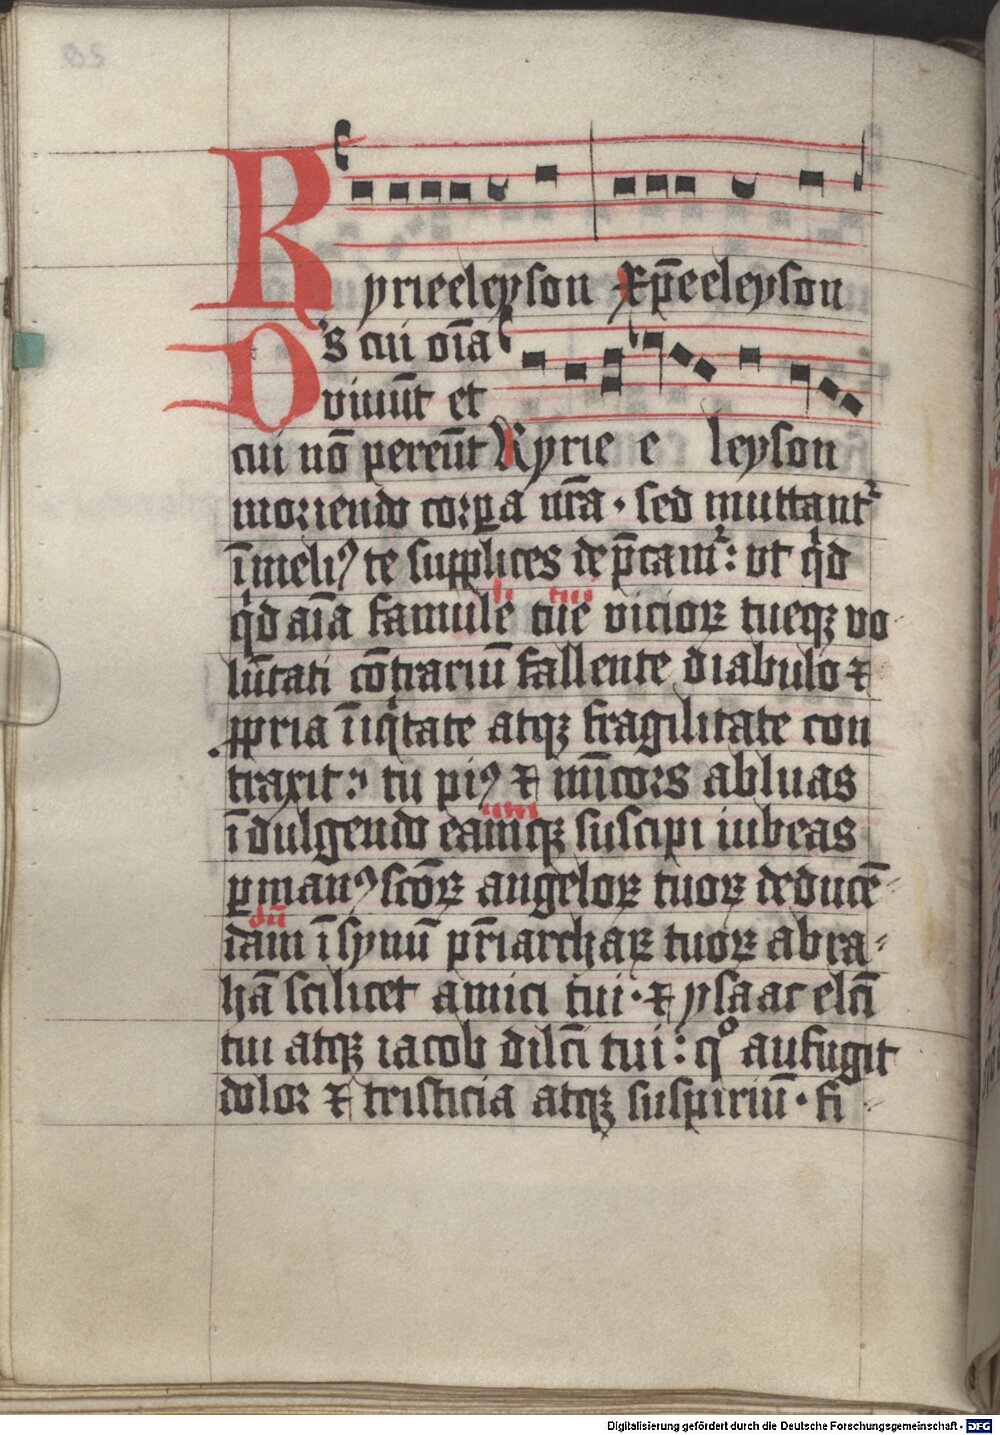 Kyrieeleyson xp̄eeleyson
Ds cui oīa
viuūt et
cui nō pereūt Kyrie e leyson
moriendo corꝑa nr̄a · sed muttantᷣ
ī meliꝯ te supplices dep̄camᷣ : vt qͥd
qͥd aīa famule li tue tui vicioꝝ tueqꝫ vo⸗
lūtati cōtrariū fallente diabulo ⁊
ꝓpria īiqͥtate atqꝫ fragilitate con
traxit : tu piꝯ ⁊ mīcors abluas
īdulgendo eamqꝫ suscipi iubeas
ꝑ manꝯ scōꝝ angeloꝝ tuoꝝ deducē⸗
dam dū ī synū pr̄iarchaꝝ tuoꝝ abra⸗
hā scilicet amici tui · ⁊ ysaac elc̄i
tui atqꝫ iacob dilc̄i tui : qͦ aufugit
dolor ⁊ tristicia atqꝫ suspiriū · fi⸗
Digitalisierung gefördert durch die Deutsche Forschungsgemeinschaft - DFG